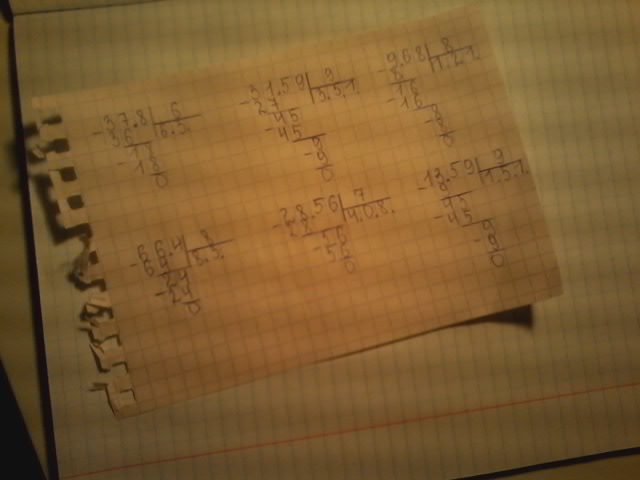 37.8 6
- 36 6.3.
18
- 18
0
31.59 9
- 27 3.5.1.
45
- 45
9
- 9
0
9.68 8
- 8 1.2.1.
16
- 16
8
- 8
0
66.4
- 64
24
- 24
0
28.56 7
- 28 4.0.8.
56
- 56
0
13.59 9
- 9 1.5.1.
45
- 45
9
- 9
0